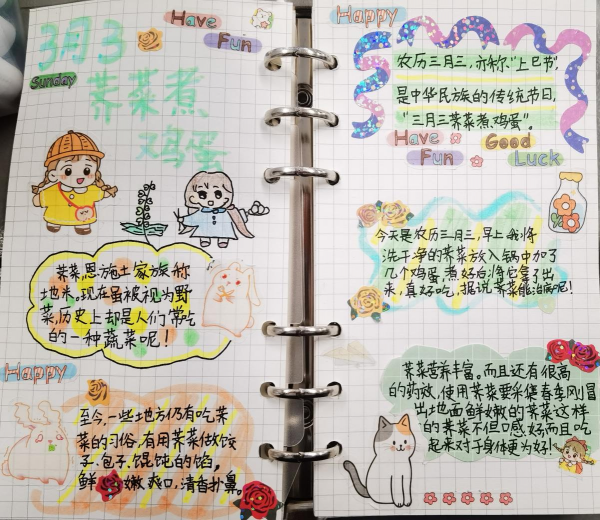 Have
Fun
3月3
Sunday
荠菜煮
鸡蛋
荠菜,恩施土家族称
地米。现在虽被视为野
菜,历史上却是人们常吃
的一种蔬菜呢!
Happy
至今,一些地方仍有吃荠
菜的习俗,有用荠菜做饺
子.包子.馄饨的馅,
鲜嫩爽口,清香扑鼻。
Happy
农历三月三,亦称"上巳节",
是中华民族的传统节日,
"三月三荠菜煮鸡蛋"。
Have Good
Fun Luck
今天是农历三月三,早上我将
洗干净的荠菜放入锅中加了
几个鸡蛋,煮好后将它拿了出
来,真好吃,据说荠菜能治病呢!
荠菜营养丰富,而且还有很高
的药效,使用荠菜要采集春季刚冒
出地面鲜嫩的荠菜这样
的荠菜不但口感好而且吃
起来对于身体更为好!